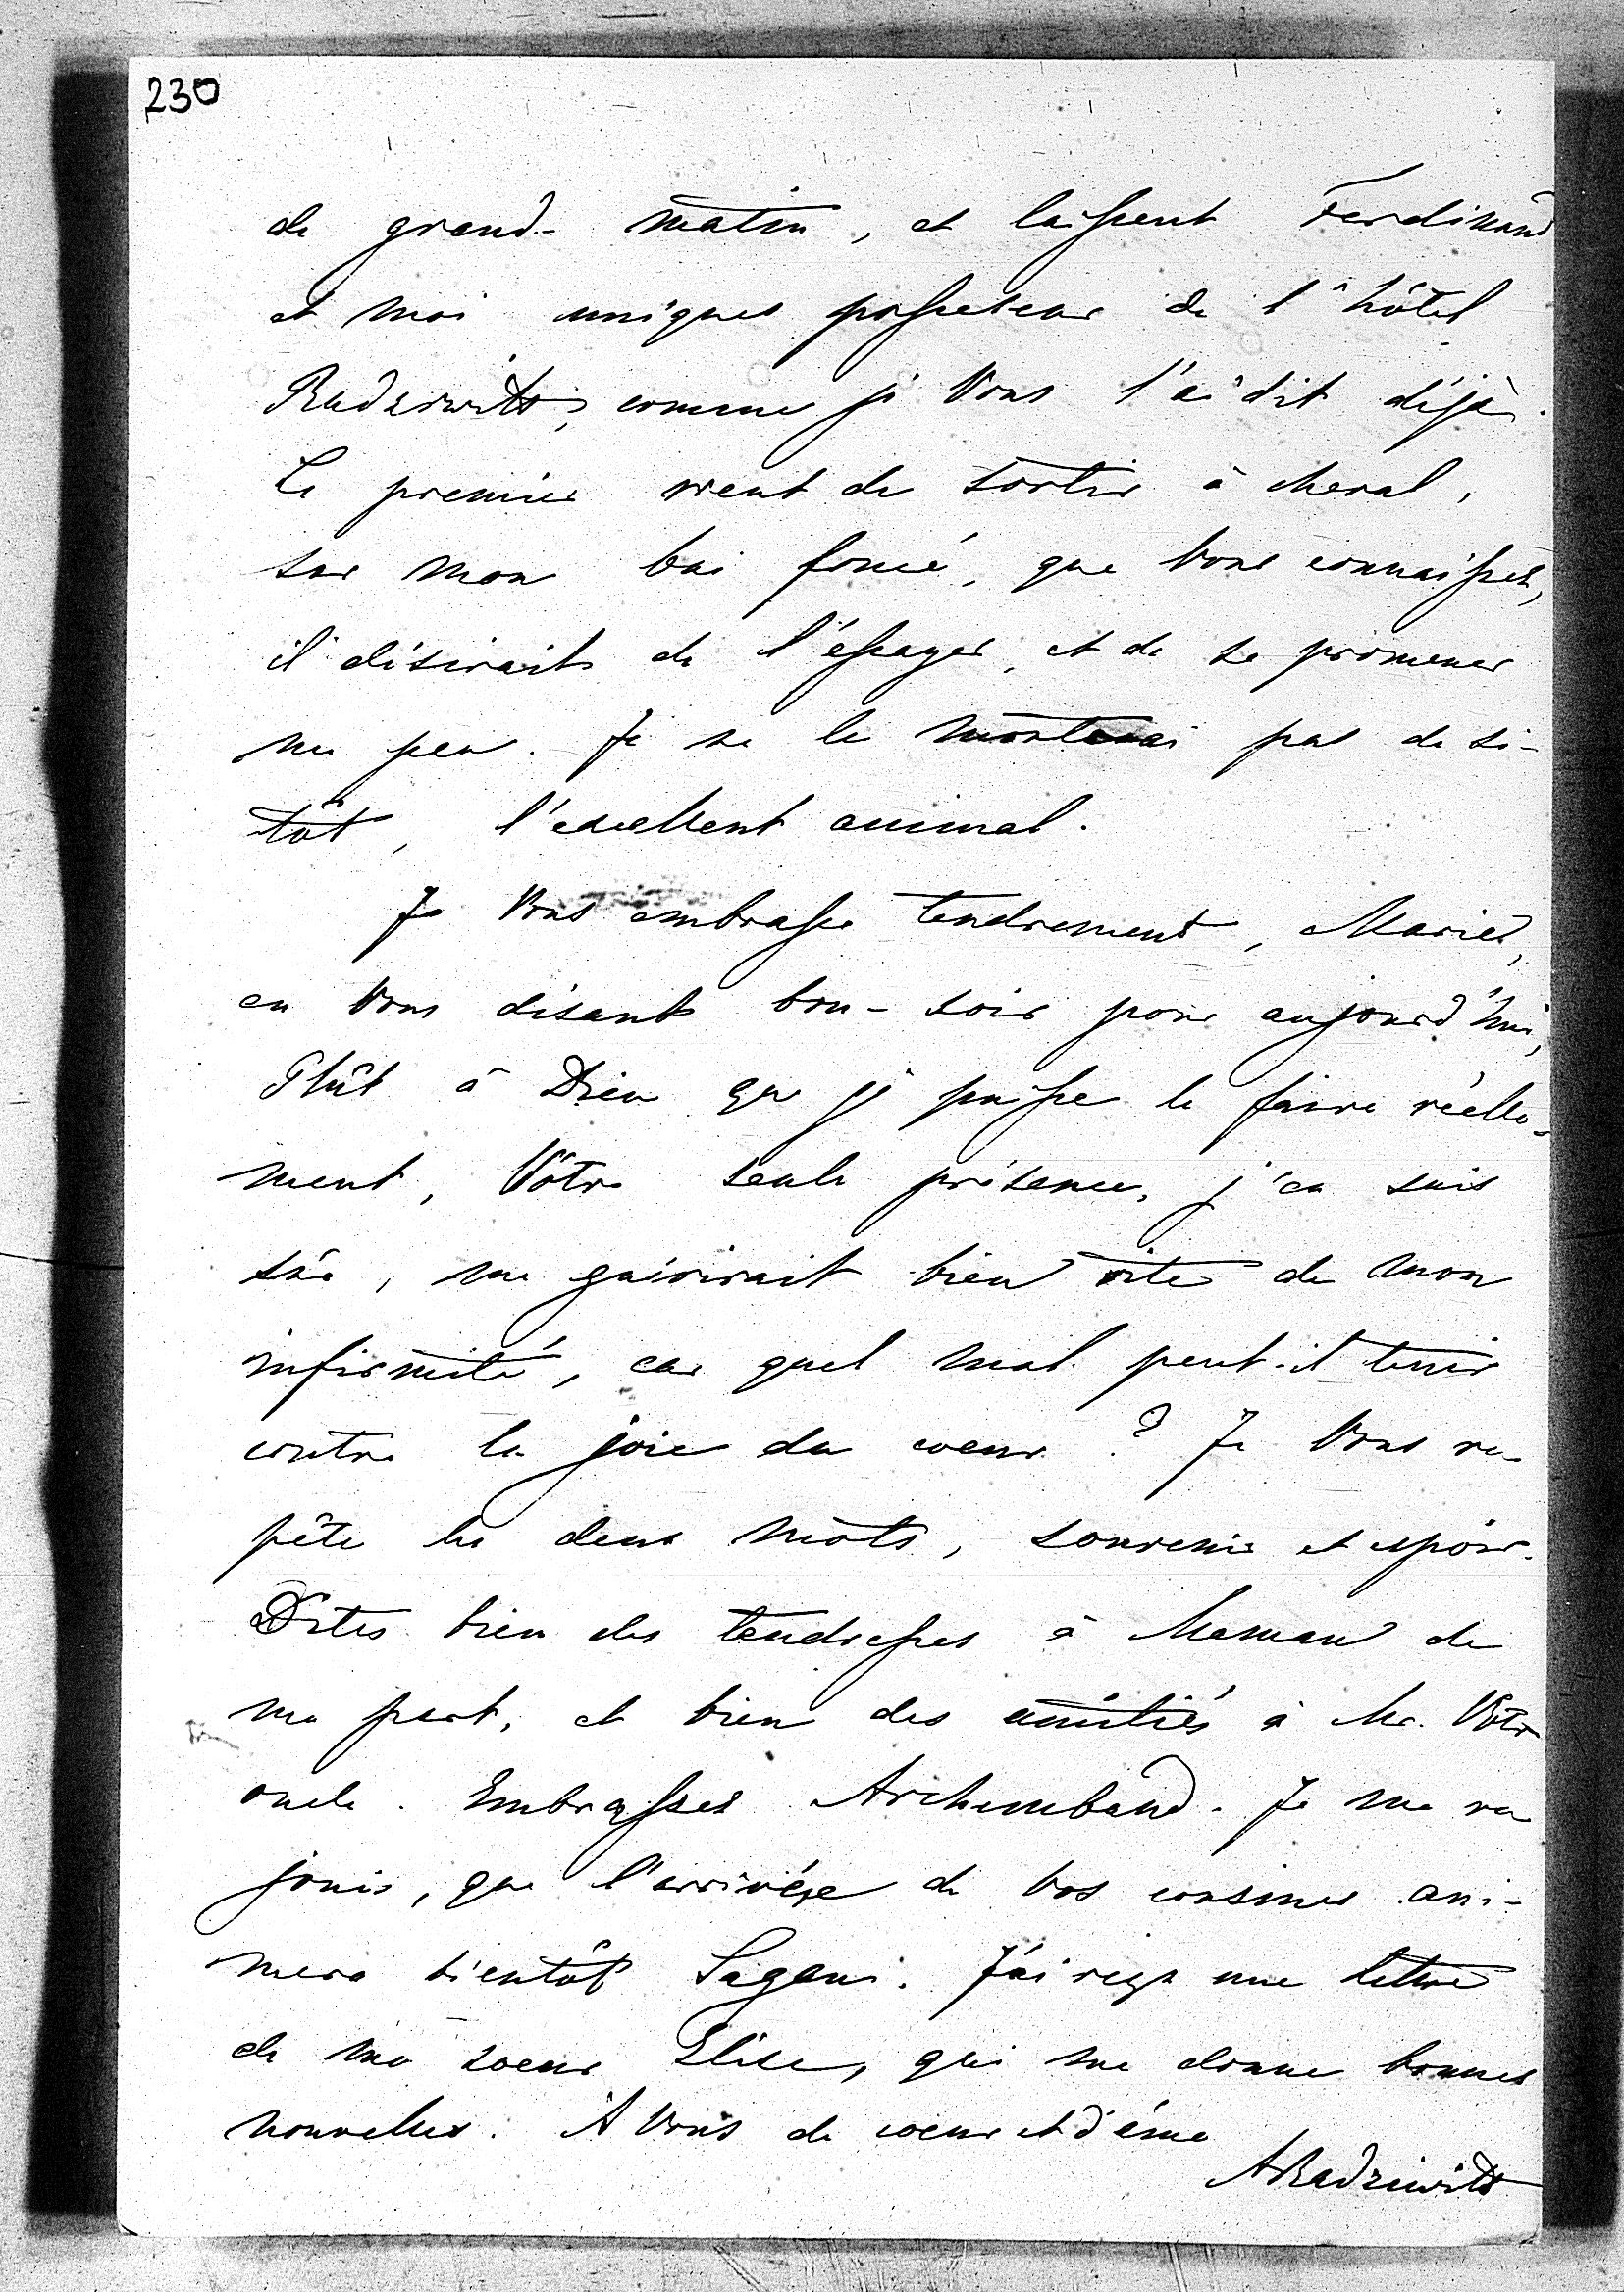 230
de grand-matin, et laissent Ferdinand
et moi uniques possesseurs de l'hôtel
Radziwill, comme je Vous l'ai dit déjà.
Le premier vient de sortir à cheval,
sur mon bai foncé, que Vous connaissez,
il désirait de l'essayer, et de se promener
un peu. Je ne le monterai pas de si-
tôt, l'excellent animal.
Je Vous embrasse tendrement, Marie,
en Vous disant bon-soir pour aujourd'hui,
Plût à Dieu que je puisse le faire réelle-
ment, Vôtre seule présence, j'en suis
sûr, me guérirait bien vite de mon
infirmité, car quel mal peut-il tenir
contre la joie du coeur? Je Vous ré-
pète les deux mots, souvenir et espoir.
Dites bien des tendresses à Maman de
ma part, et bien des amitiés à Mr. Vôtre
oncle. Embrassez Archambaud. Je me ré
jouis, que l'arrivée de Vos cousines ani-
mera bientôt Sagan. J'ai reçu une lettre
de ma soeur Elise, qui me donne bonnes
nouvelles. À Vous de coeur et d'âme
ARadziwill